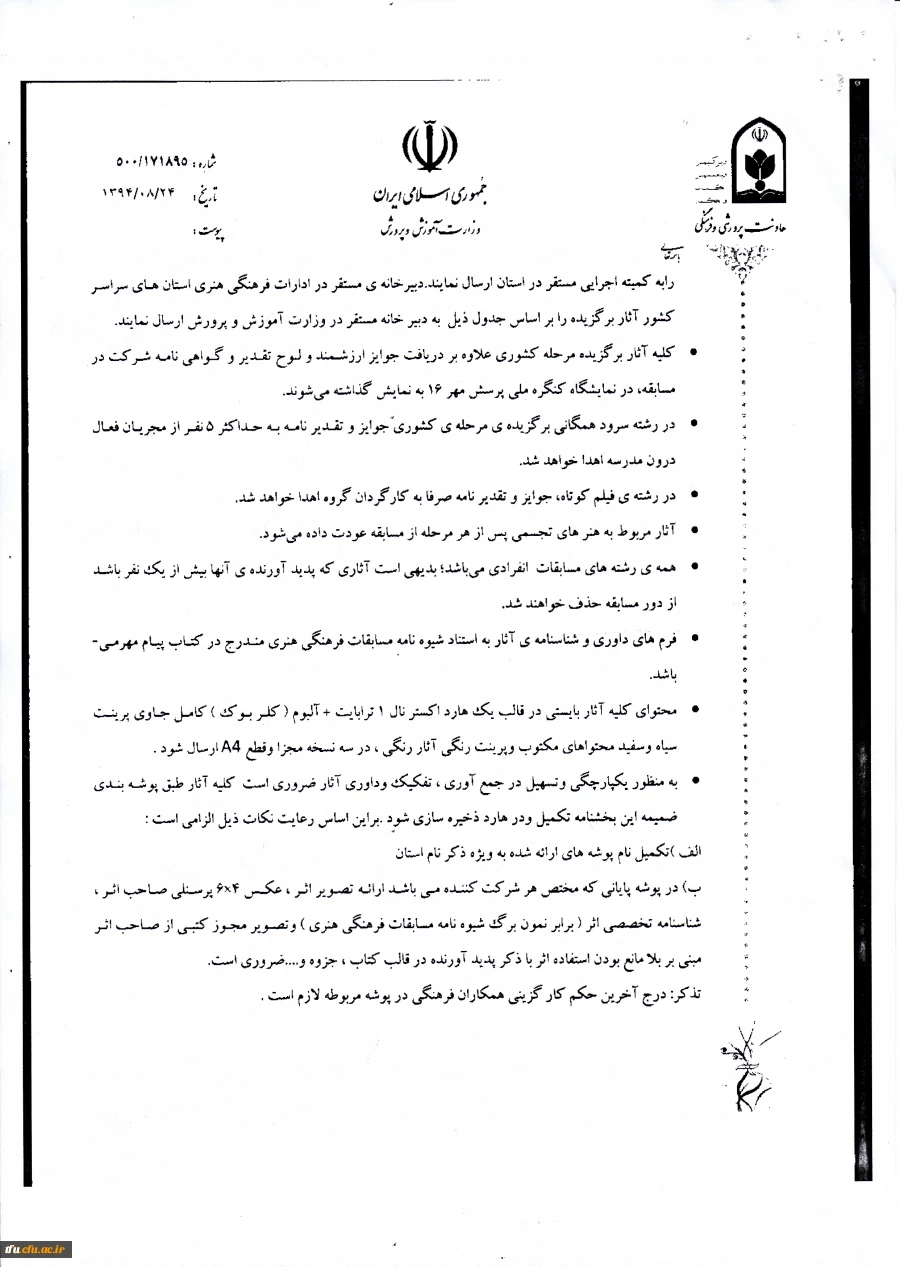 شماره: ۵۰۰/۱۷۱۸۹۵
تاریخ: ۱۳۹۴/۰۸/۲۴
پیوست:
جمهوری اسلامی ایران
وزارت آموزش و پرورش
معاونت پرورشی و فرهنگی
باسمه تعالی
رابه کمیته اجرایی مستقر در استان ارسال نمایند.دبیرخانه ی مستقر در ادارات فرهنگی هنری استان های سراسر
کشور آثار برگزیده را بر اساس جدول ذیل به دبیر خانه مستقر در وزارت آموزش و پرورش ارسال نمایند.
• کلیه آثار برگزیده مرحله کشوری علاوه بر دریافت جوایز ارزشمند و لوح تقدیر و گواهی نامه شرکت در
مسابقه، در نمایشگاه کنگره ملی پرسش مهر ۱۶ به نمایش گذاشته می‌شوند.
• در رشته سرود همگانی برگزیده ی مرحله ی کشوری جوایز و تقدیر نامه به حداکثر ۵ نفر از مجریان فعال
درون مدرسه اهدا خواهد شد.
• در رشته ی فیلم کوتاه، جوایز و تقدیر نامه صرفا به کارگردان گروه اهدا خواهد شد.
• آثار مربوط به هنر های تجسمی پس از هر مرحله از مسابقه عودت داده می‌شود.
• همه ی رشته های مسابقات انفرادی می‌باشد؛ بدیهی است آثاری که پدید آورنده ی آنها بیش از یک نفر باشد
از دور مسابقه حذف خواهند شد.
• فرم های داوری و شناسنامه ی آثار به استناد شیوه نامه مسابقات فرهنگی هنری مندرج در کتاب پیام مهرمی-
باشد.
• محتوای کلیه آثار بایستی در قالب یک هارد اکسترنال ۱ ترابایت + آلبوم ( کلر بوک ) کامل حاوی پرینت
سیاه وسفید محتواهای مکتوب وپرینت رنگی آثار رنگی ، در سه نسخه مجزا وقطع A4 ارسال شود .
• به منظور یکپارچگی وتسهیل در جمع آوری ، تفکیک وداوری آثار ضروری است کلیه آثار طبق پوشه بندی
ضمیمه این بخشنامه تکمیل ودر هارد ذخیره سازی شود .براین اساس رعایت نکات ذیل الزامی است :
الف )تکمیل نام پوشه های ارائه شده به ویژه ذکر نام استان
ب) در پوشه پایانی که مختص هر شرکت کننده می باشد ارائه تصویر اثر ، عکس ۴×۶ پرسنلی صاحب اثر ،
شناسنامه تخصصی اثر ( برابر نمون برگ شیوه نامه مسابقات فرهنگی هنری ) وتصویر مجوز کتبی از صاحب اثر
مبنی بر بلا مانع بودن استفاده اثر با ذکر پدید آورنده در قالب کتاب ، جزوه و....ضروری است.
تذکر: درج آخرین حکم کار گزینی همکاران فرهنگی در پوشه مربوطه لازم است .
tfu.cfu.ac.ir